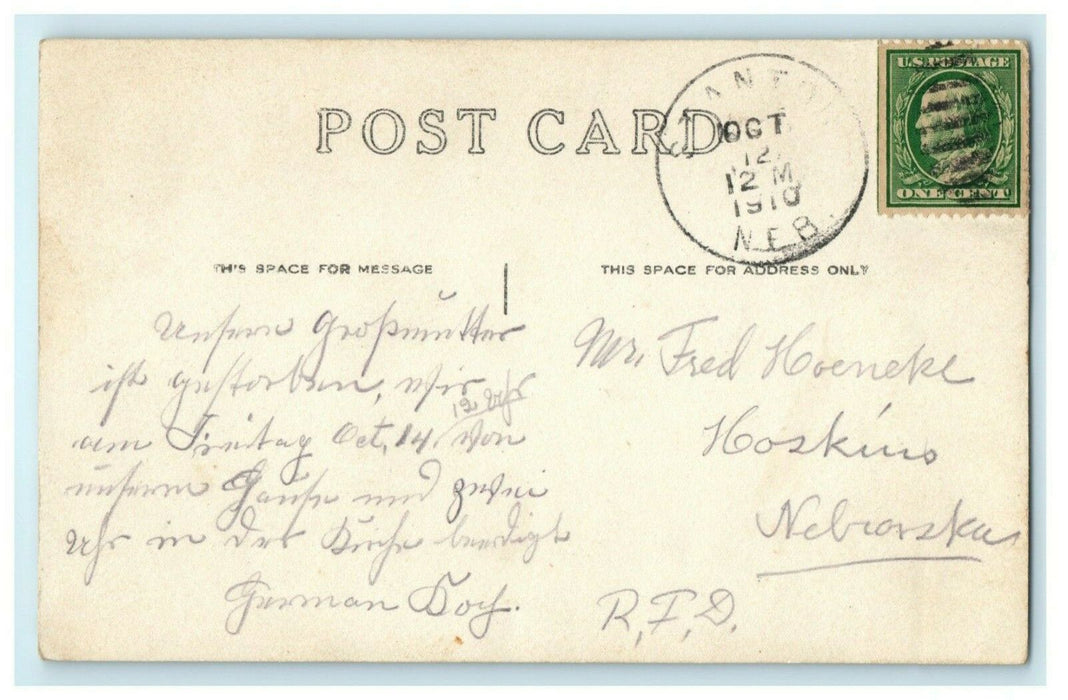 POST CARD
STANTON
OCT
12
12 M
1910
NEB.
U.S. POSTAGE
ONE CENT
THIS SPACE FOR MESSAGE
THIS SPACE FOR ADDRESS ONLY
Unsere Großmutter
ist gestorben, wir
12 Uhr
am Freitag Oct, 14 von
unserm Hause und zwei
Uhr in der Kirche beerdigt
Herman Koch.
Mr. Fred Hoeneke
Hoskins
Nebraska
R.F.D.